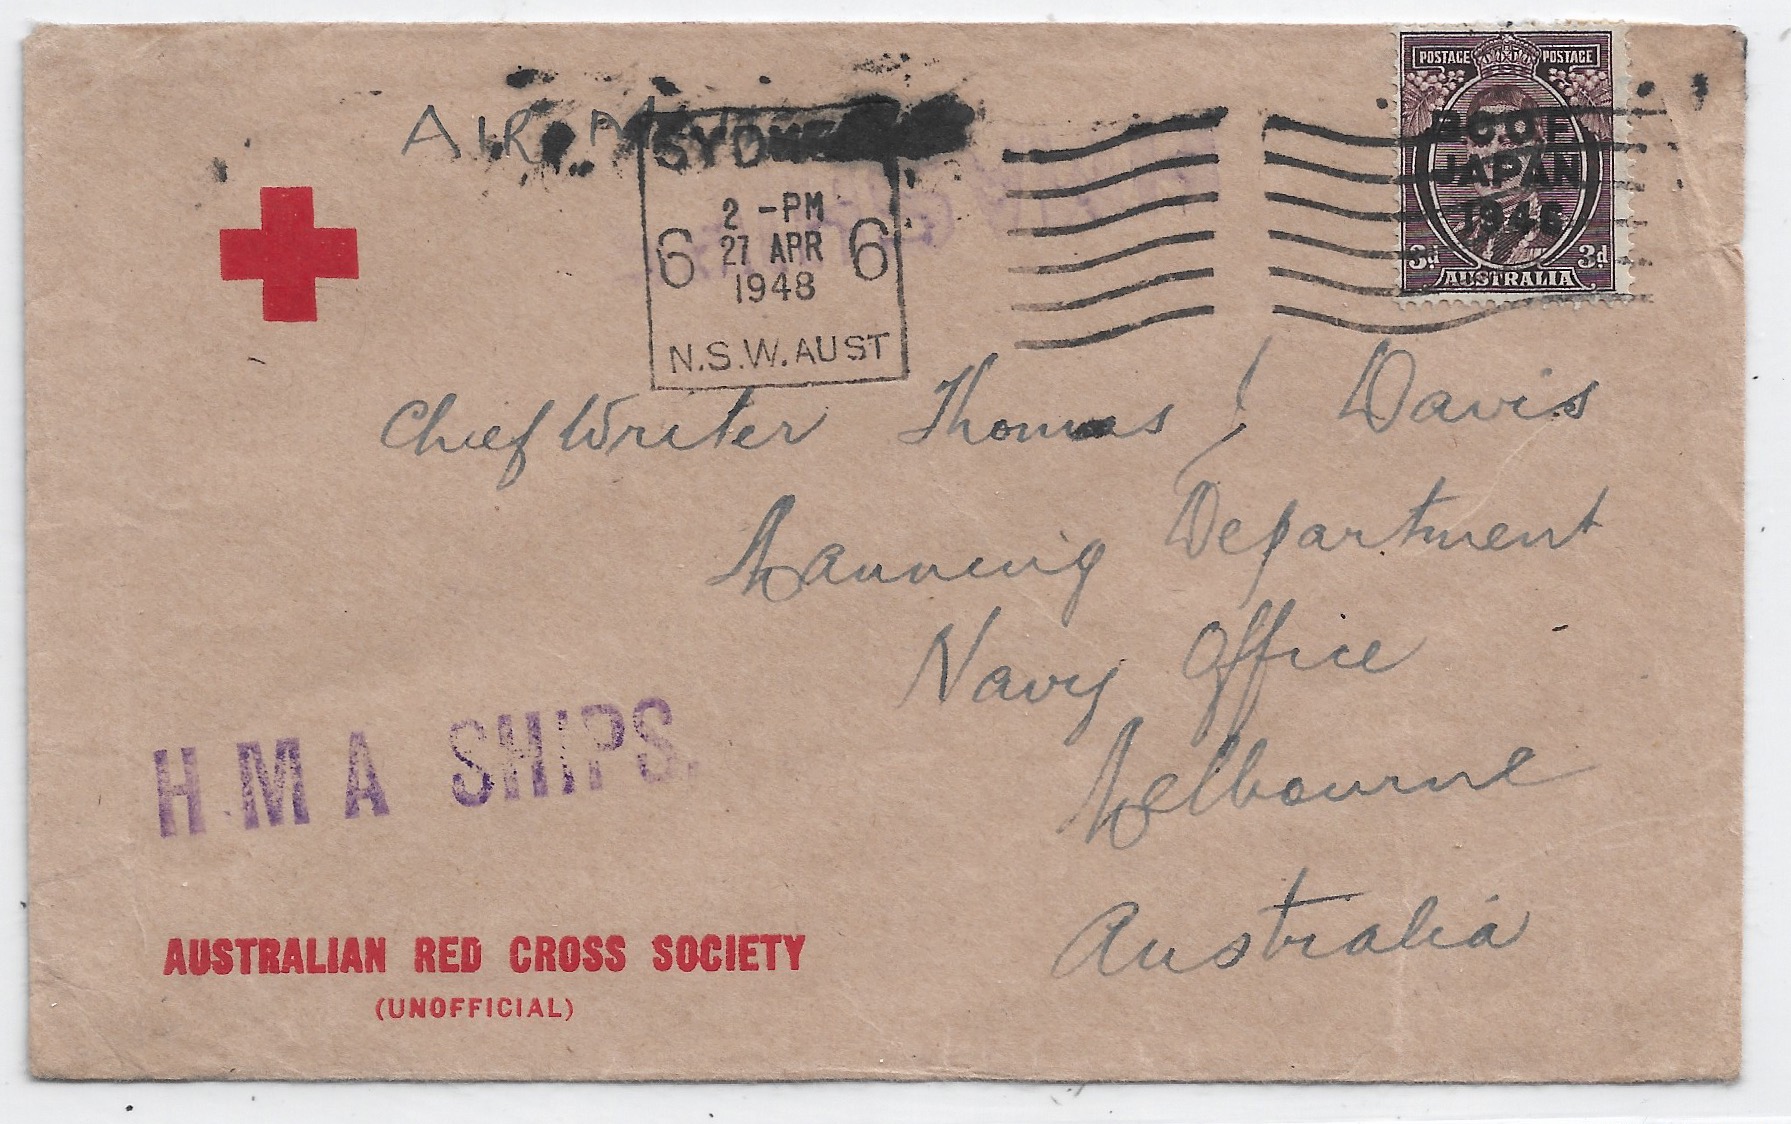 POSTAGE POSTAGE
B.C.O.F.
JAPAN
1946
3d AUSTRALIA 3d
AIR MAIL
SYDNEY
2 -PM
6 27 APR 6
1948
N.S.W. AUST
Chief Writer Thomas J Davis
Manning Department
Navy Office
Melbourne
Australia
H.M.A SHIPS.
AUSTRALIAN RED CROSS SOCIETY
(UNOFFICIAL)